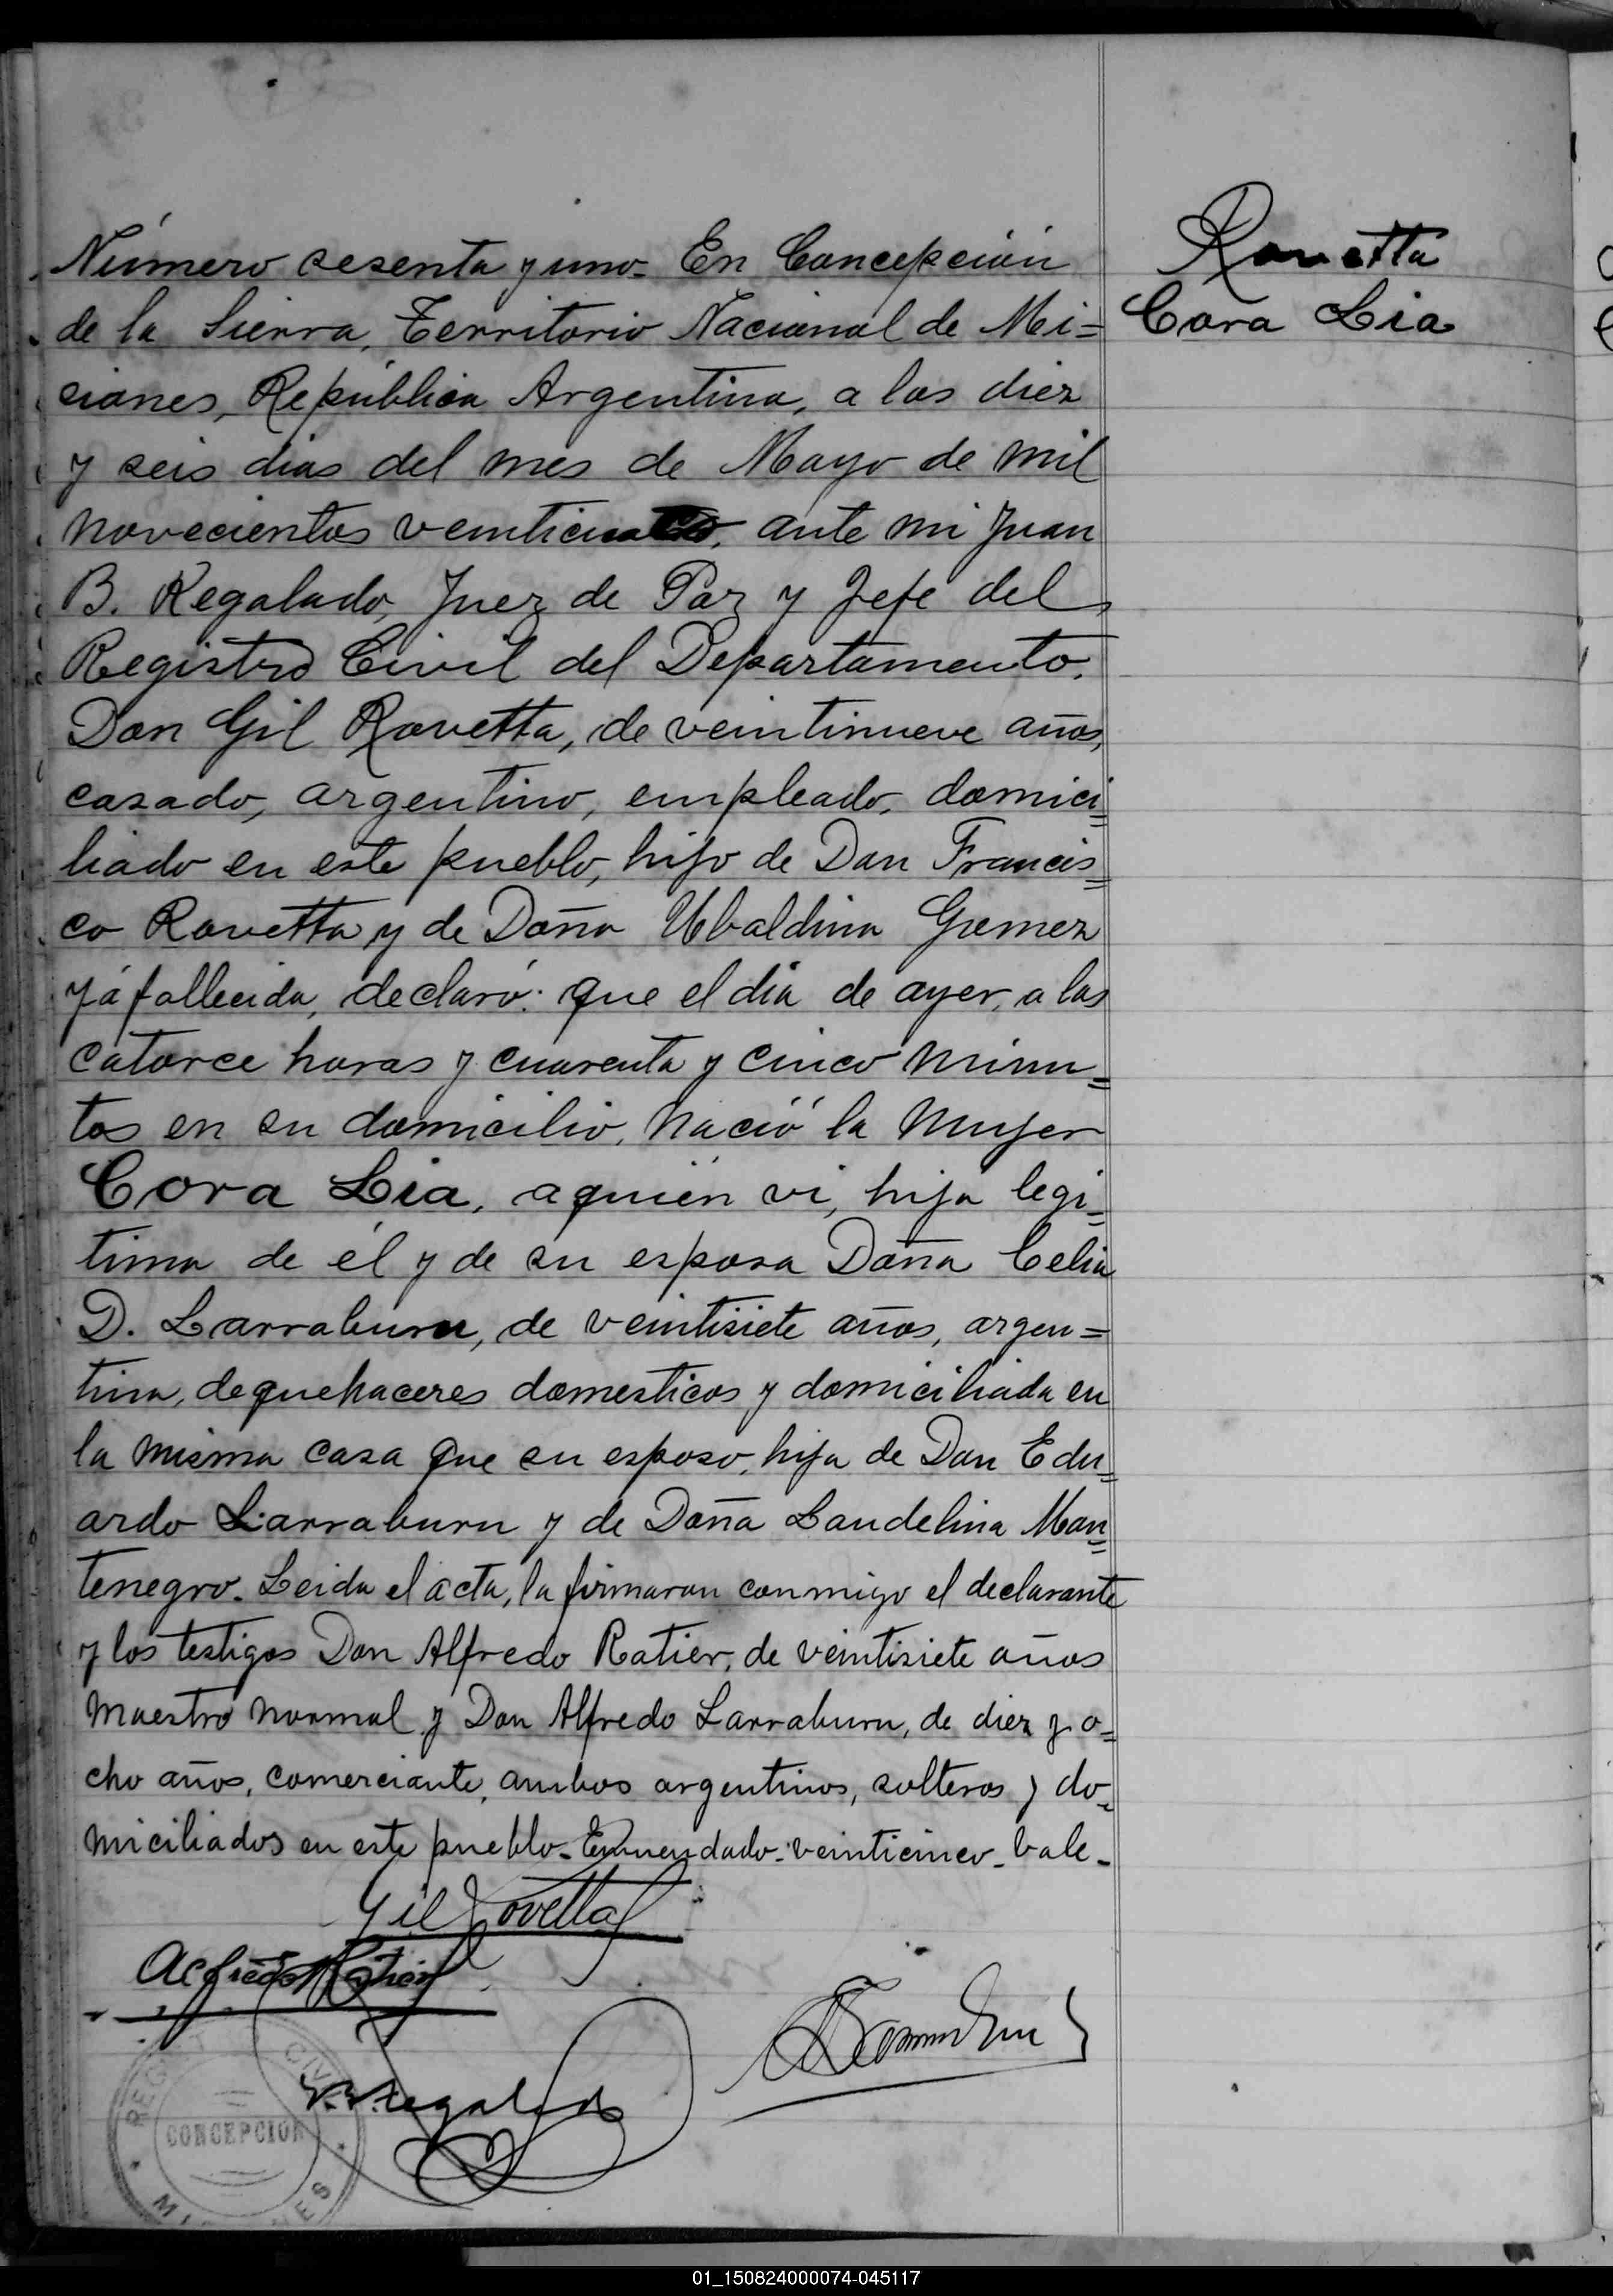 Número sesenta y uno. En Concepción
de la Sierra, Territorio Nacional de Mi=
ciones, República Argentina, a los diez
y seis dias del mes de Mayo de mil
novecientos veinticinco, ante mi Juan
B. Regalado, Juez de Paz y Jefe del
Registro Civil del Departamento.
Don Gil Rovetta, de veintinueve años,
casado, argentino, empleado, domici=
liado en este pueblo, hijo de Don Francis=
co Rovetta y de Doña Ubaldina Gremez
yá fallecida, declaró: que el dia de ayer, a las
catorce horas y cuarenta y cinco minu=
tos en su domicilio, nació la mujer
Cora Lia, aquién vi, hija legi=
tima de él y de su esposa Doña Celia
D. Larraburu, de veintisiete años, argen=
tina, de quehaceres domesticos y domiciliada en
la misma casa que su esposo, hija de Don Edu=
ardo Larraburu y de Doña Laudelina Mon=
tenegro. Leida el acta, la firmaron conmigo el declarante
y los testigos Don Alfredo Ratier, de veintisiete años
maestro normal y Don Alfredo Larraburu, de diez y o=
cho años, comerciante, ambos argentinos, solteros y do=
miciliados en este pueblo. Enmendado: veinticinco. Vale.
Rovetta
Cora Lia
Gil Rovetta
Alfredo Ratier
Regalado
REGIST CIVIL
CONCEPCION
01_150824000074-045117